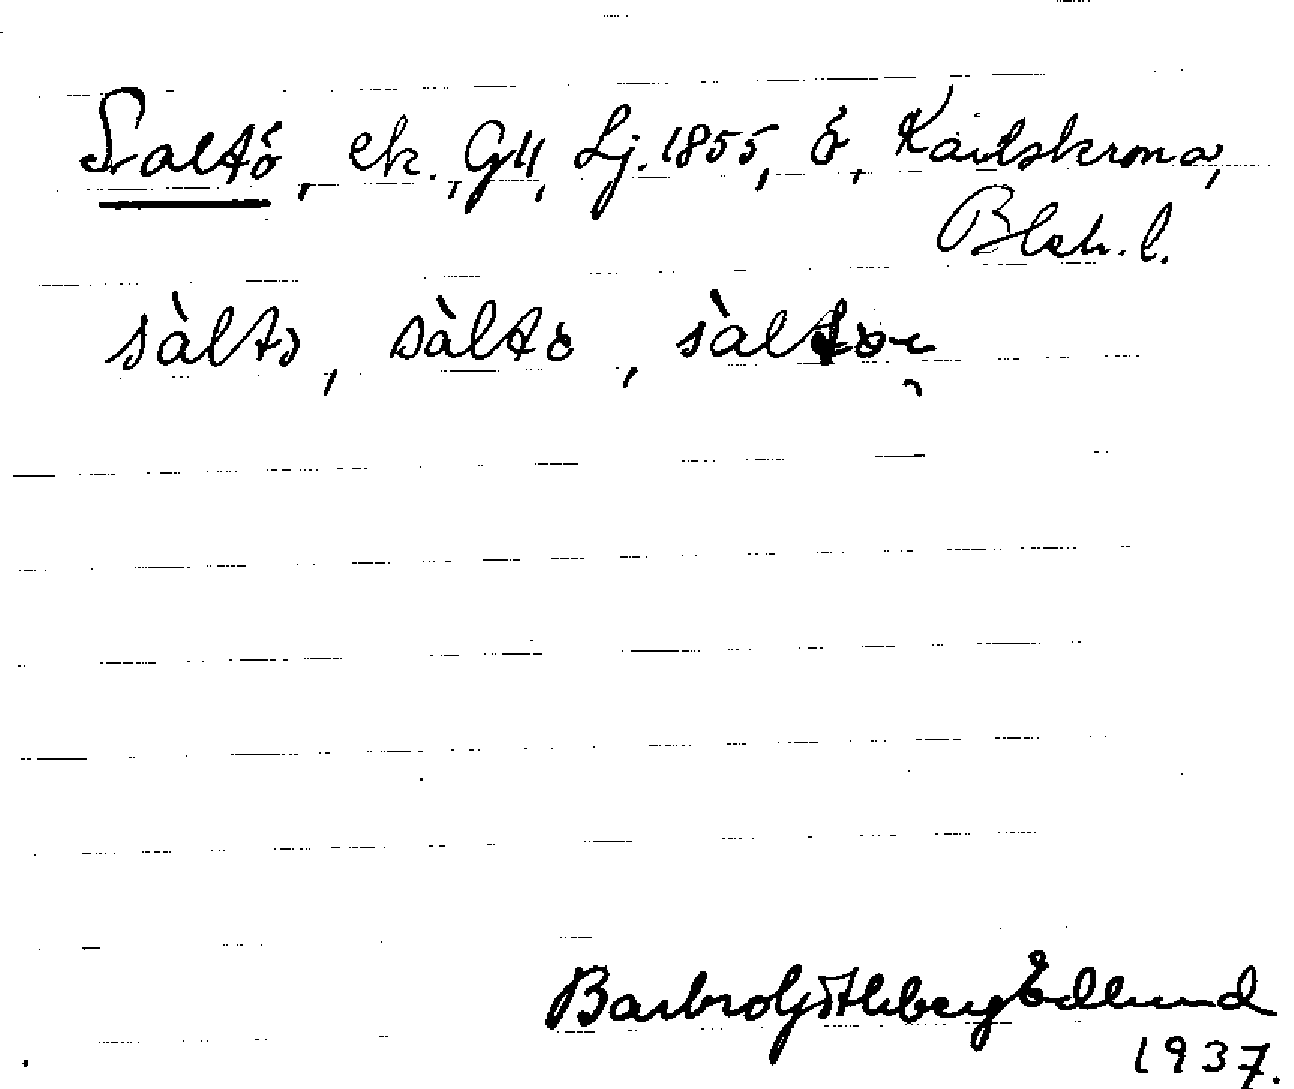 Saltö, ek., GK, Lj. 1855, ö, Karlskrona,
Blek. l.
sàltɔ, sàltɵ, sàltɵʌ
Barbro Götheberg Edlund
1937.